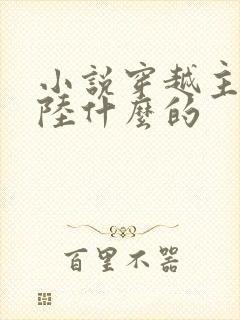 小說穿越主
陸什麼的
百里不器